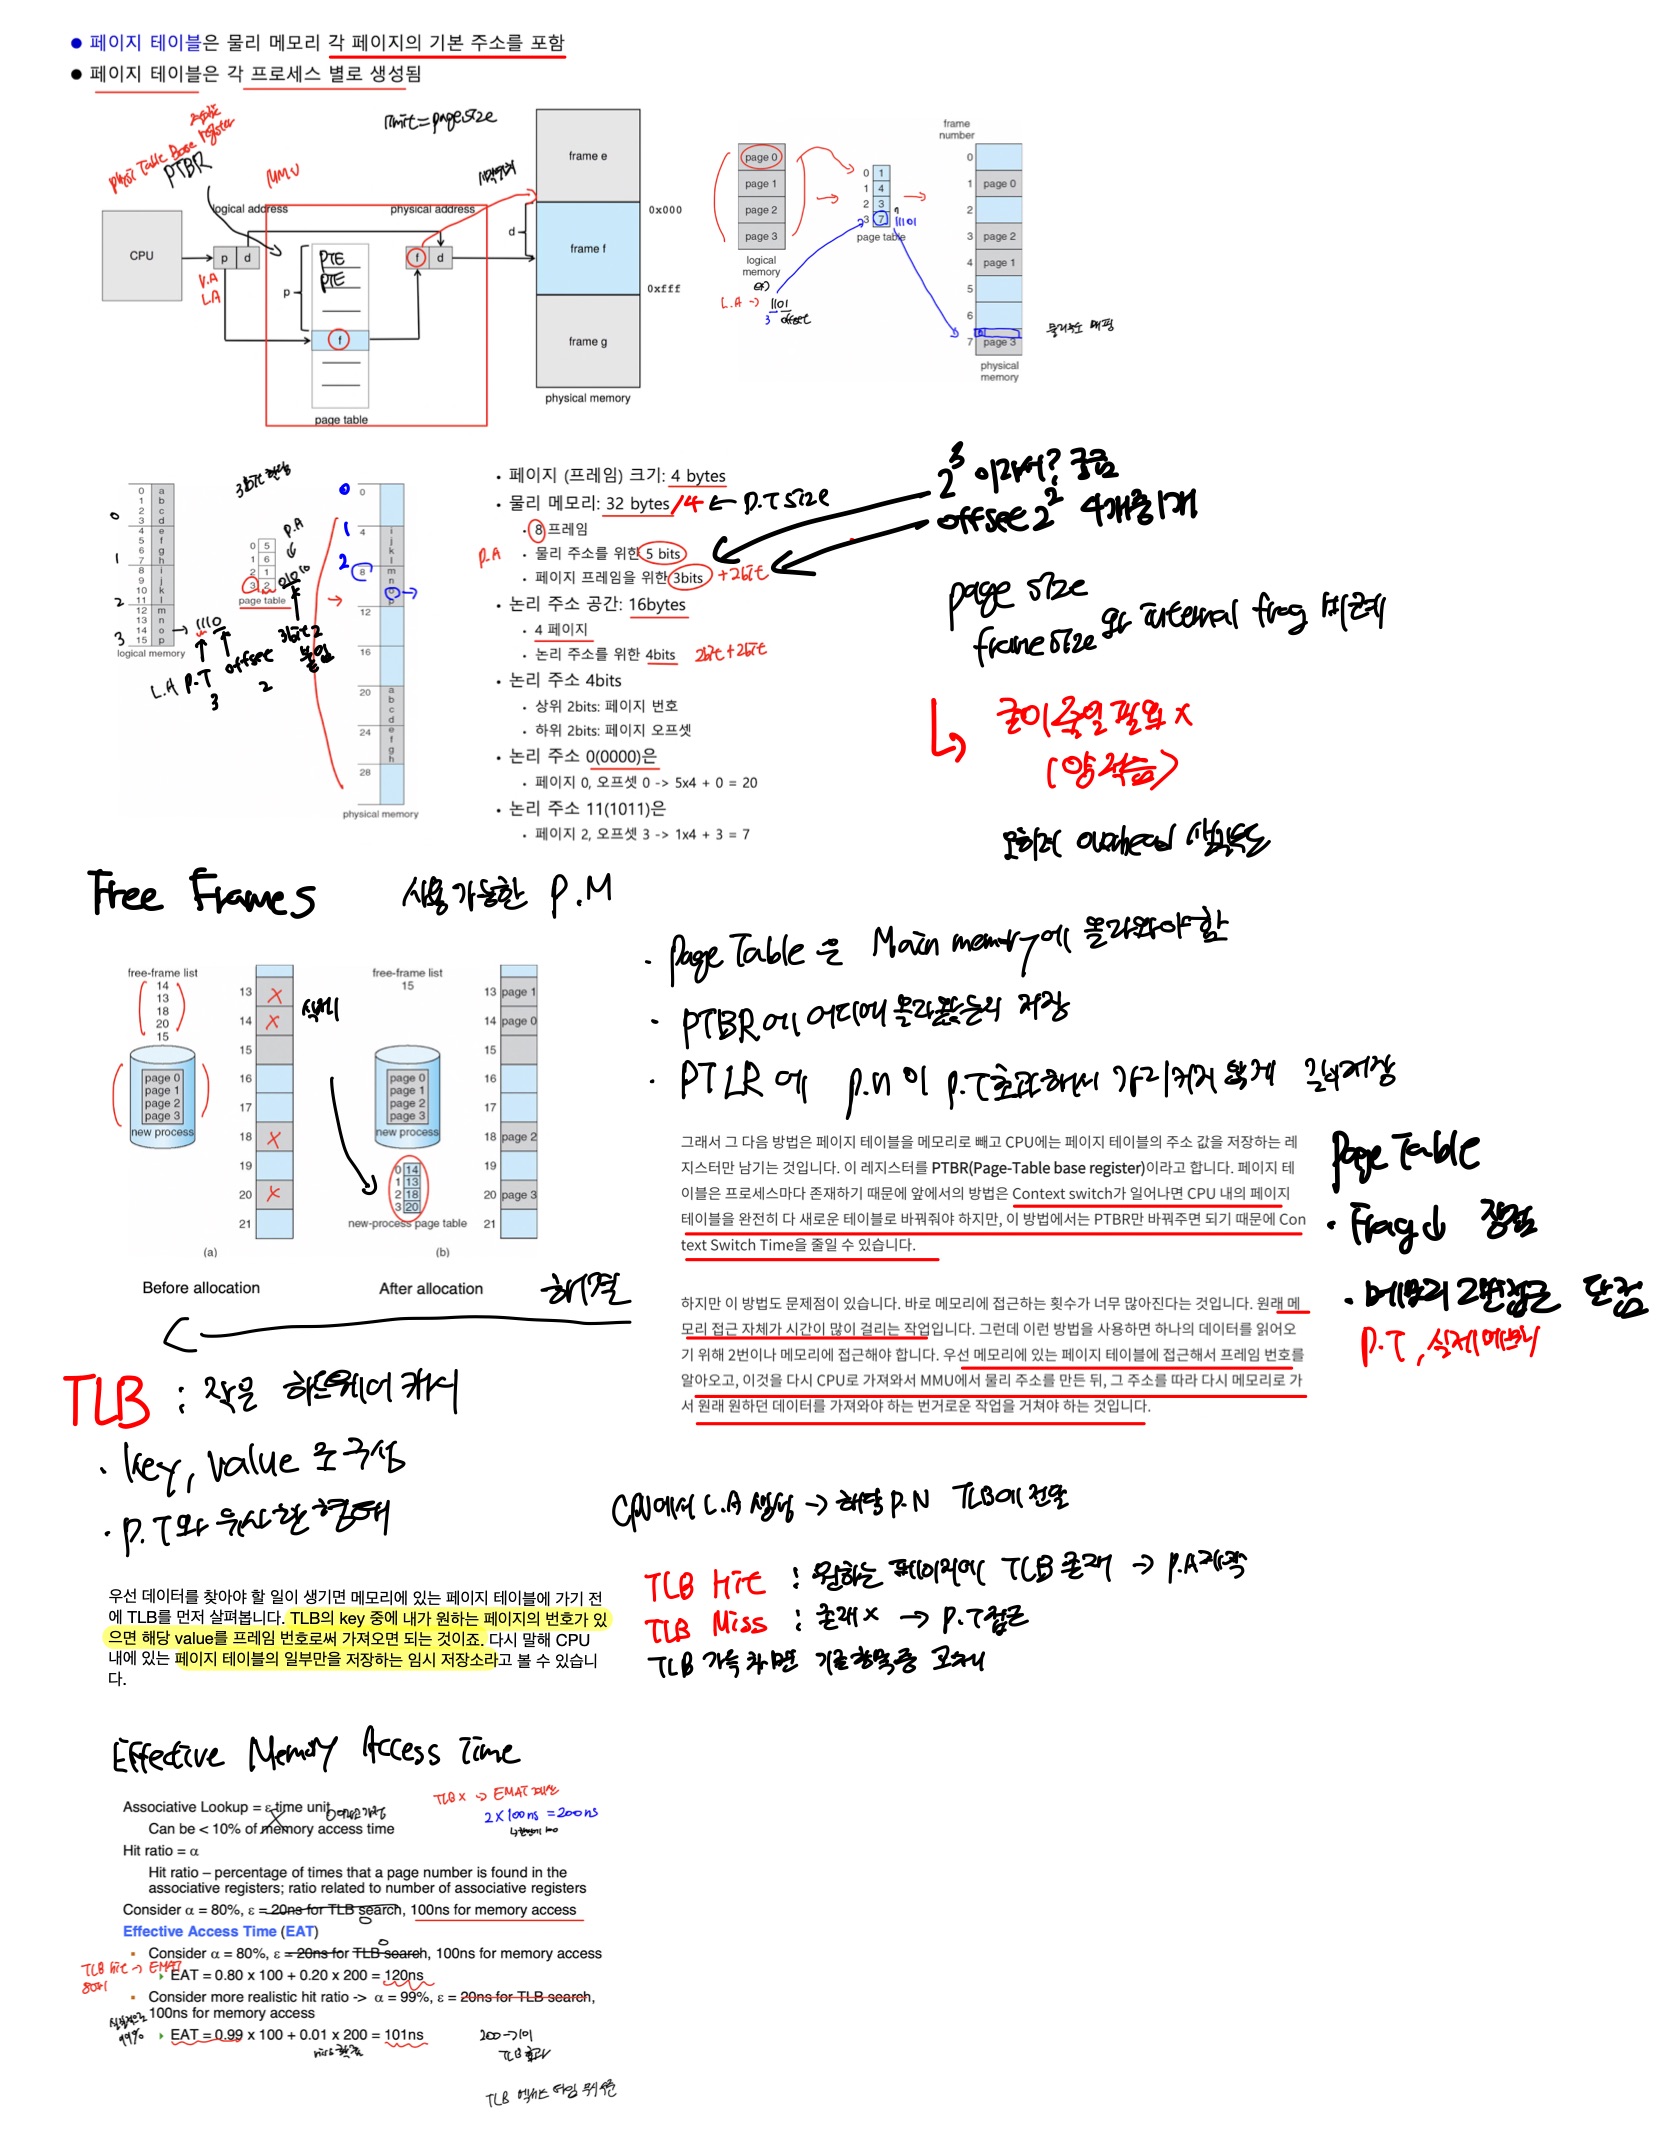 ● 페이지 테이블은 물리 메모리 각 페이지의 기본 주소를 포함
● 페이지 테이블은 각 프로세스 별로 생성됨
Table Base register
PTBR
MMU
limit = page size
logical address
physical address
CPU
p d
V.A
L.A
p
PTE
PTE
f
page table
f d
d
frame e
0x000
frame f
0xfff
frame g
physical memory
page 0
page 1
page 2
page 3
logical memory
0 1
1 4
2 3
3 7
page table
11101
L.A → 1101
3 offset
frame number
0
1 page 0
2
3 page 2
4 page 1
5
6
7 page 3
physical memory
물리주소 매핑
0 a
1 b
2 c
3 d
4 e
5 f
6 g
7 h
8 i
9 j
10 k
11 l
12 m
13 n
14 o
15 p
logical memory
0
1
2
3
→ 1110
L.A P.T offset
3 2
P.A
0 5
1 6
2 1
3 2
page table
01010
0
1
2
0
4 i j k l
8 m n o p
12
16
20 a b c d
24 e f g h
28
physical memory
• 페이지 (프레임) 크기: 4 bytes
• 물리 메모리: 32 bytes /4 ← P.T size
• 8 프레임
P.A • 물리 주소를 위한 5 bits
• 페이지 프레임을 위한 3bits +2bit
• 논리 주소 공간: 16bytes
• 4 페이지
• 논리 주소를 위한 4bits 2bit+2bit
• 논리 주소 4bits
• 상위 2bits: 페이지 번호
• 하위 2bits: 페이지 오프셋
• 논리 주소 0(0000)은
• 페이지 0, 오프셋 0 -> 5x4 + 0 = 20
• 논리 주소 11(1011)은
• 페이지 2, 오프셋 3 -> 1x4 + 3 = 7
2³ 이라서? 궁금
offset 2² 4개중 1개
page size
frame size 와 internal frag 비례
↳ 굳이 줄일 필요 x
오히려 overhead
Free Frames 사용가능한 P.M
free-frame list
14
13
18
20
15
page 0
page 1
page 2
page 3
new process
13
14
15
16
17
18
19
20
21
(a)
Before allocation
free-frame list
15
page 0
page 1
page 2
page 3
new process
0 14
1 13
2 18
3 20
new-process page table
13 page 1
14 page 0
15
16
17
18 page 2
19
20 page 3
21
(b)
After allocation
해결
· page Table 은 Main memory에 올라와야 함
· PTBR에 어디에 올라왔는지 저장
· PTLR에 p.n이 p.T초과해서 가리키지 않게 길이저장
그래서 그 다음 방법은 페이지 테이블을 메모리로 빼고 CPU에는 페이지 테이블의 주소 값을 저장하는 레
지스터만 남기는 것입니다. 이 레지스터를 PTBR(Page-Table base register)이라고 합니다. 페이지 테
이블은 프로세스마다 존재하기 때문에 앞에서의 방법은 Context switch가 일어나면 CPU 내의 페이지
테이블을 완전히 다 새로운 테이블로 바꿔줘야 하지만, 이 방법에서는 PTBR만 바꿔주면 되기 때문에 Con
text Switch Time을 줄일 수 있습니다.
하지만 이 방법도 문제점이 있습니다. 바로 메모리에 접근하는 횟수가 너무 많아진다는 것입니다. 원래 메
모리 접근 자체가 시간이 많이 걸리는 작업입니다. 그런데 이런 방법을 사용하면 하나의 데이터를 읽어오
기 위해 2번이나 메모리에 접근해야 합니다. 우선 메모리에 있는 페이지 테이블에 접근해서 프레임 번호를
알아오고, 이것을 다시 CPU로 가져와서 MMU에서 물리 주소를 만든 뒤, 그 주소를 따라 다시 메모리로 가
서 원래 원하던 데이터를 가져와야 하는 번거로운 작업을 거쳐야 하는 것입니다.
page Table
· Frag↓ 장점
· 메모리 2번접근 단점
P.T, 실제메모리
TLB : 작은 하드웨어 캐시
· key, value 로 구성
· P.T와 유사한 형태
우선 데이터를 찾아야 할 일이 생기면 메모리에 있는 페이지 테이블에 가기 전
에 TLB를 먼저 살펴봅니다. TLB의 key 중에 내가 원하는 페이지의 번호가 있
으면 해당 value를 프레임 번호로써 가져오면 되는 것이죠. 다시 말해 CPU
내에 있는 페이지 테이블의 일부만을 저장하는 임시 저장소라고 볼 수 있습니
다.
CPU에서 L.A 생성 → 해당 P.N TLB에 전달
TLB Hit : 원하는 페이지에 TLB 존재 → P.A제작
TLB Miss : 존재 x → P.T접근
TLB 가득 차면 기존항목중 교체
Effective Memory Access Time
Associative Lookup = ε time unit
Can be < 10% of memory access time
TLB x → EMAT 계산
2 x 100ns = 200ns
Hit ratio = α
Hit ratio – percentage of times that a page number is found in the
associative registers; ratio related to number of associative registers
Consider α = 80%, ε = 20ns for TLB search, 100ns for memory access
0
Effective Access Time (EAT)
0
▪ Consider α = 80%, ε = 20ns for TLB search, 100ns for memory access
TLB hit → EMAT
EAT = 0.80 x 100 + 0.20 x 200 = 120ns
▪ Consider more realistic hit ratio -> α = 99%, ε = 20ns for TLB search,
100ns for memory access
99%
EAT = 0.99 x 100 + 0.01 x 200 = 101ns
miss 확률
200 → 101
TLB 효과
TLB 엑세스 타임 무시수준